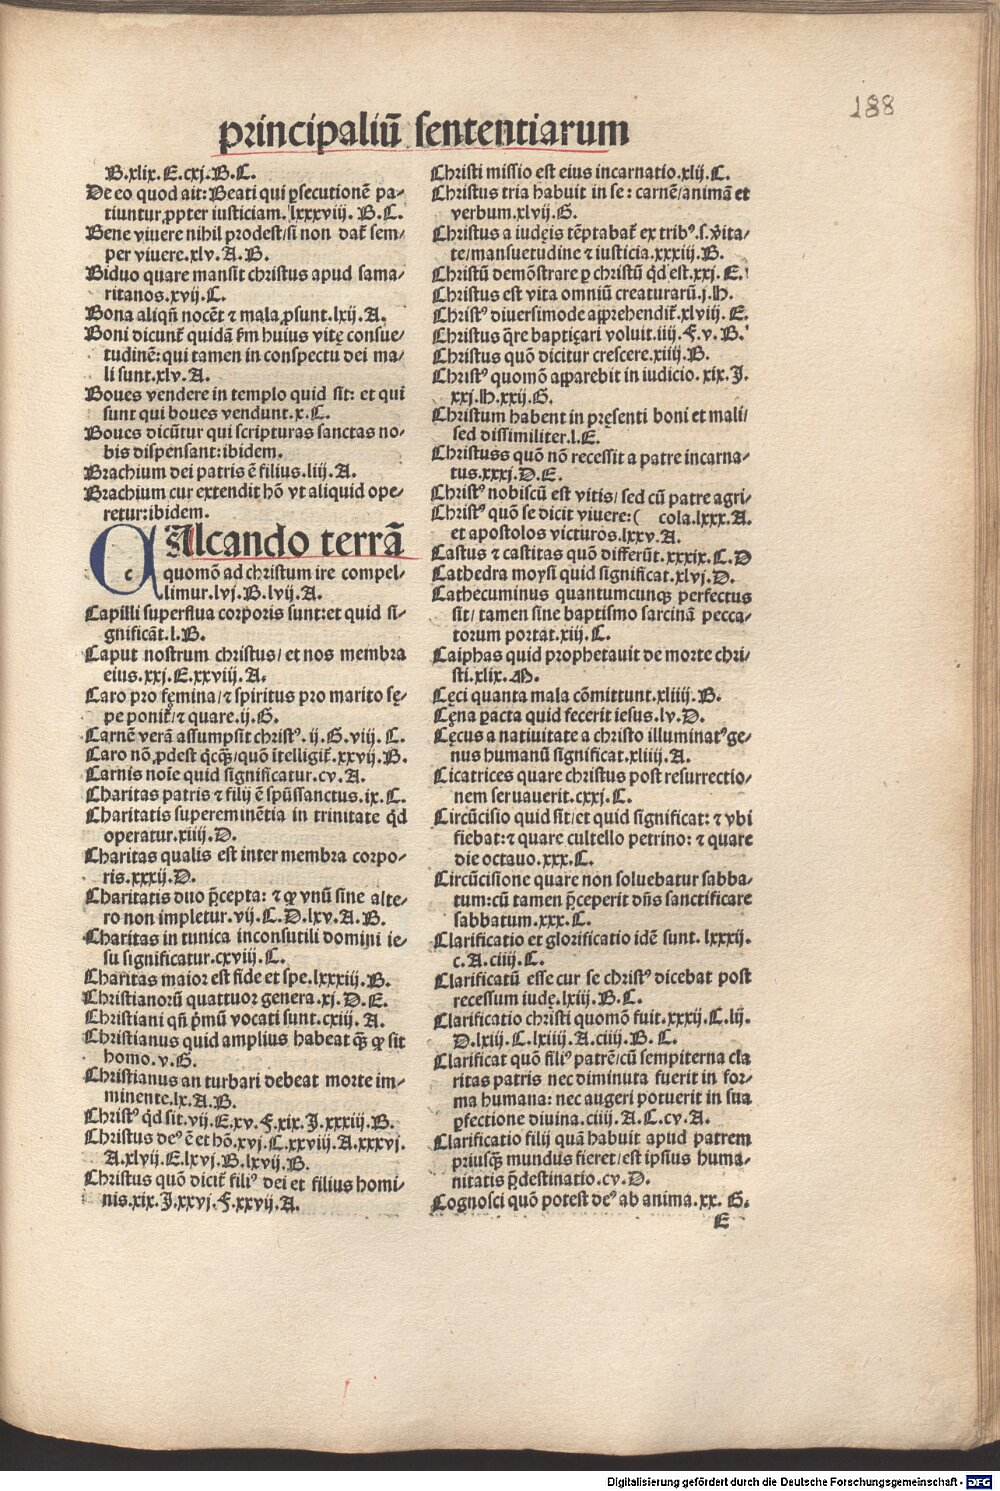 188
principaliū sententiarum
B.xlix.E.cxj.B.C.
De eo quod ait: Beati qui ꝑsecutionē pa⸗
tiuntur ꝓpter iusticiam. lxxxviij. B.C.
Bene viuere nihil prodest/si non dat̄ sem⸗
per viuere.xlv.A.B.
Biduo quare mansit christus apud sama⸗
ritanos.xvij.C.
Bona aliqn̄ nocēt ⁊ mala ꝓsunt.lxij.A.
Boni dicunt̄ quidā ẜm huius vitę consue⸗
tudinē: qui tamen in conspectu dei ma⸗
li sunt.xlv.A.
Boues vendere in templo quid sit: et qui
sunt qui boues vendunt.x.C.
Boues dicūtur qui scripturas sanctas no⸗
bis dispensant: ibidem.
Brachium dei patris ē filius.liij.A.
Brachium cur extendit hō vt aliquid ope⸗
retur: ibidem.
c Alcando terrā
quomō ad christum ire compel⸗
limur.lvj.B.lvij.A.
Capilli superflua corporis sunt: et quid si⸗
gnificāt.l.B.
Caput nostrum christus/ et nos membra
eius.xxj.E.xxviij.A.
Caro pro fęmina/⁊ spiritus pro marito sę⸗
pe ponit̄/⁊ quare.ij.G.
Carnē verā assumpsit christꝰ.ij.G.viij.C.
Caro nō ꝓdest q̇cq̄ȝ/quō ītelligit̄.xxvij.B.
Carnis noīe quid significatur.cv.A.
Charitas patris ⁊ filij ē spūssanctus.ix.C.
Charitatis supereminētia in trinitate q̇d
operatur.xiiij.D.
Charitas qualis est inter membra corpo⸗
ris.xxxij.D.
Charitatis duo p̄cepta: ⁊ ꝙ vnū sine alte⸗
ro non impletur.vij.C.D.lxv.A.B.
Charitas in tunica inconsutili domini ie⸗
su significatur.cxviij.C.
Charitas maior est fide et spe.lxxxiij.B.
Christianorū quattuor genera.xj.D.E.
Christiani qn̄ p̄mū vocati sunt.cxiij.A.
Christianus quid amplius habeat q̄ȝ ꝙ sit
homo.v.G.
Christianus an turbari debeat morte im⸗
minente.lx.A.B.
Christꝰ q̇d sit.vij.E.xv.F.xix.J.xxxiij.B.
Christus deꝰ ē et hō.xvj.C.xxviij.A.xxxvj.
A.xlvij.E.lxvj.B.lxvij.B.
Christus quō dicit̄ filiꝰ dei et filius homi⸗
nis.xix.J.xxvj.F.xxvij.A.
Christi missio est eius incarnatio.xlij.C.
Christus tria habuit in se: carnē/animā et
verbum.xlvij.G.
Christus a iudęis tēptabat̄ ex tribꝰ.s.v̄ita⸗
te/mansuetudine ⁊ iusticia.xxxiij.B.
Christū demōstrare ꝑ christū q̇d est.xxj.E.
Christus est vita omniū creaturarū.j.H.
Christꝰ diuersimode apprehendit̄.xlviij.E.
Christus q̄re baptiçari voluit.iiij.F.v.B.
Christus quō dicitur crescere.xiiij.B.
Christꝰ quomō apparebit in iudicio.xix.J.
xxj.H.xxij.G.
Christum habent in pręsenti boni et mali/
sed dissimiliter.l.E.
Christuss quō nō recessit a patre incarna⸗
tus.xxxj.D.E.
Christꝰ nobiscū est vitis/ sed cū patre agri⸗
Christꝰ quō se dicit viuere: ( cola.lxxx.A.
et apostolos victuros.lxxv.A.
Castus ⁊ castitas quō differūt.xxxix.C.D
Cathedra moysi quid significat.xlvj.D.
Cathecuminus quantumcunqȝ perfectus
sit/ tamen sine baptismo sarcinā pecca⸗
torum portat.xiij.C.
Caiphas quid prophetauit de morte chri⸗
sti.xlix.M.
Cęci quanta mala cōmittunt.xliiij.B.
Cęna ꝑacta quid fecerit iesus.lv.D.
Cęcus a natiuitate a christo illuminatꝰ ge⸗
nus humanū significat.xliiij.A.
Cicatrices quare christus post resurrectio⸗
nem seruauerit.cxxj.C.
Circūcisio quid sit/et quid significat: ⁊ vbi
fiebat: ⁊ quare cultello petrino: ⁊ quare
die octauo.xxx.C.
Circūcisione quare non soluebatur sabba⸗
tum: cū tamen p̄ceperit dn̄s sanctificare
sabbatum.xxx.C.
Clarificatio et glorificatio idē sunt.lxxxij.
c.A.ciiij.C.
Clarificatū esse cur se christꝰ dicebat post
recessum iudę.lxiij.B.C.
Clarificatio christi quomō fuit.xxxij.C.lij.
D.lxiij.C.lxiiij.A.ciiij.B.C.
Clarificat quō filiꝰ patrē/cū sempiterna cla
ritas patris nec diminuta fuerit in for⸗
ma humana: nec augeri potuerit in sua
ꝑfectione diuina.ciiij.A.C.cv.A.
Clarificatio filij quā habuit apud patrem
priusq̄ȝ mundus fieret/est ipsius huma⸗
nitatis p̄destinatio.cv.D.
Cognosci quō potest deꝰ ab anima.xx.G.
E
Digitalisierung gefördert durch die Deutsche Forschungsgemeinschaft - DFG